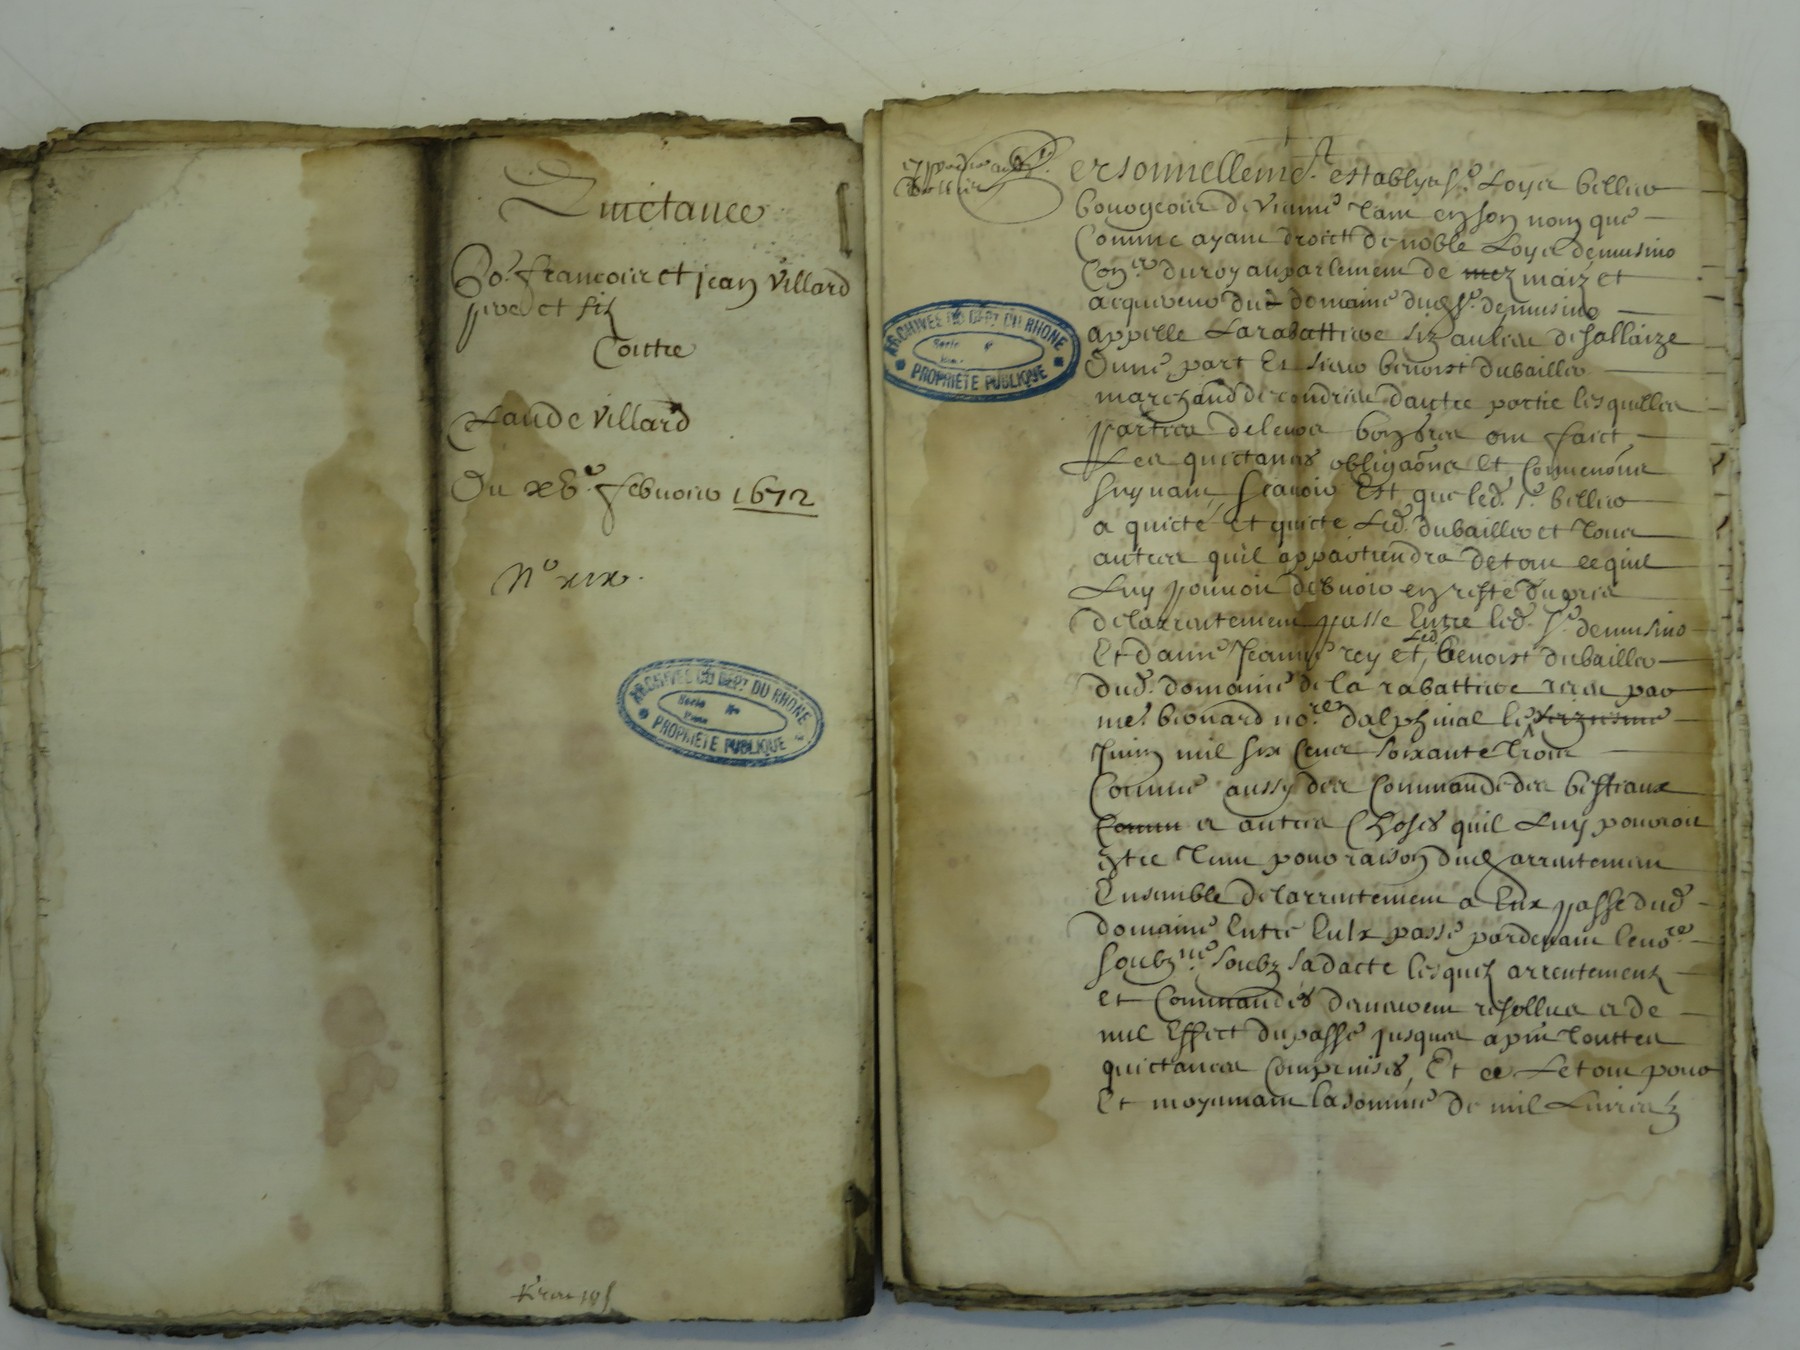 Quictance
Po.r francois et jean villard
pere et filz
Contre
Claude villard
Du xv.e febvrier 1672
N.o xix.
ARCHIVES DU DEPT DU RHONE
Serie N.o
PROPRIÉTÉ PUBLIQUE
Personnellem.t establys s.r Loys bellier
bourgeois de vienne tant en son nom que
Comme ayant droict de noble Loys demusino
Con.er du roy au parlement de mez maiz et
acquereur du domaine dud s.r demusino
appelle La rabattiere siz au lieu de sallaize
Dune part Et sieur benoist dubaillier
marchand de condrieu dautre partie lesquelles
parties de leurs bon gres ont faict
Les quictances obligaons et Conventions
suyvant, scavoir Est que led. s.r bellier
a quicté et quicte Led. dubaillier et tous
autres quil appartiendra de tout ce quil
Luy pouvoit debvoir en reste du pris
de larrentement passe Entre led. s.r demusino
Et dame Jeanne rey et Led. benoist dubaillier
dud. domaine de la rabattiere receu par
me brouard no.re dalphinal le
Juin mil six Cens soixante trois
Comme aussy des Commandes des bestiaux
et autres Choses quil Luy pouvoit
Estre tenu pour raison dud arrentement
Ensemble de larrentement a Eux passe dud
domaine Entre Eulx passé pardevant le no.re
soubz.né soubz sa dacte lesquelz arrentementz
et Commandes demeurent resollus et de
nul Effect du passé jusques a pnt touttes
quictances Comprinses, Et ce Le tout pour
Et moyennant la somme de mil Livres
ARCHIVES DU DEPT DU RHONE
Serie N.o
PROPRIÉTÉ PUBLIQUE